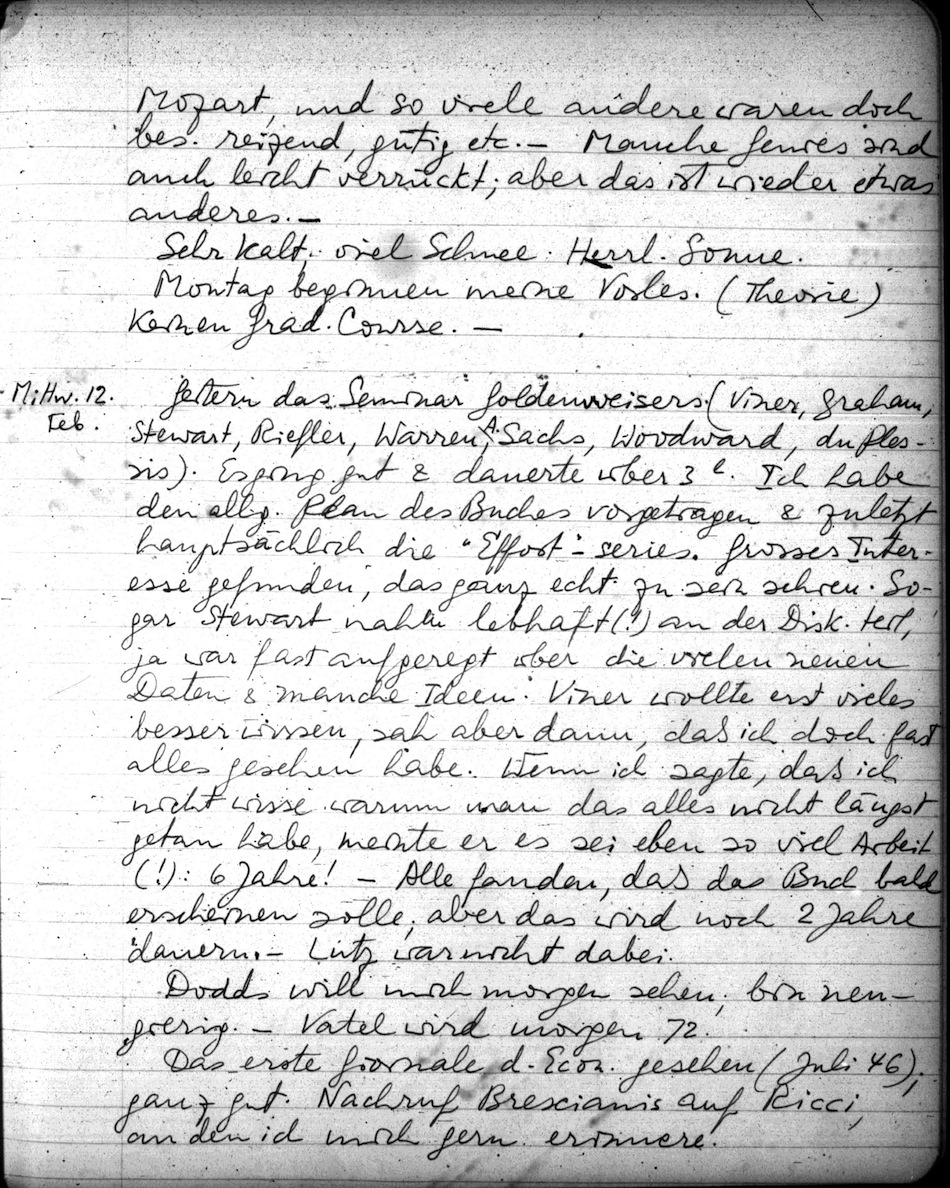 Mozart, und so viele andere waren doch
bes. reizend, gütig etc. – Manche Genies sind
auch leicht verrückt; aber das ist wieder etwas
anderes. –
Sehr kalt, viel Schnee. Herrl. Sonne.
Montag beginnen meine Vorles. (Theorie)
Keinen Grad. Course. –
Mittw. 12. Feb.
Gestern das Seminar Goldenweisers (Viner, Graham,
Stewart, Riefler, Warren, A. Sachs, Woodward, du Ples-
sis). Es ging gut & dauerte über 3 h. Ich habe
den allg. Plan des Buches vorgetragen & zuletzt
hauptsächlich die "Effort"-series. Grosses Inter-
esse gefunden, das ganz echt zu sein schien. So-
gar Stewart nahm lebhaft (!) an der Disk. teil,
ja war fast aufgeregt über die vielen neuen
Daten & manche Ideen. Viner wollte erst vieles
besser wissen, sah aber dann, daß ich doch fast
alles gesehen habe. Wenn ich sagte, daß ich
nicht wisse warum man das alles nicht längst
getan habe, meinte er es sei eben so viel Arbeit
(!): 6 Jahre! – Alle fanden, daß das Buch bald
erscheinen solle, aber das wird noch 2 Jahre
dauern. – Lutz war nicht dabei.
Dodds will mich morgen sehen; bin neu-
gierig. – Vatel wird morgen 72.
Das erste Giornale d. Econ. gesehen (Juli 46);
ganz gut. Nachruf Brescianis auf Ricci,
an den ich mich gern erinnere.